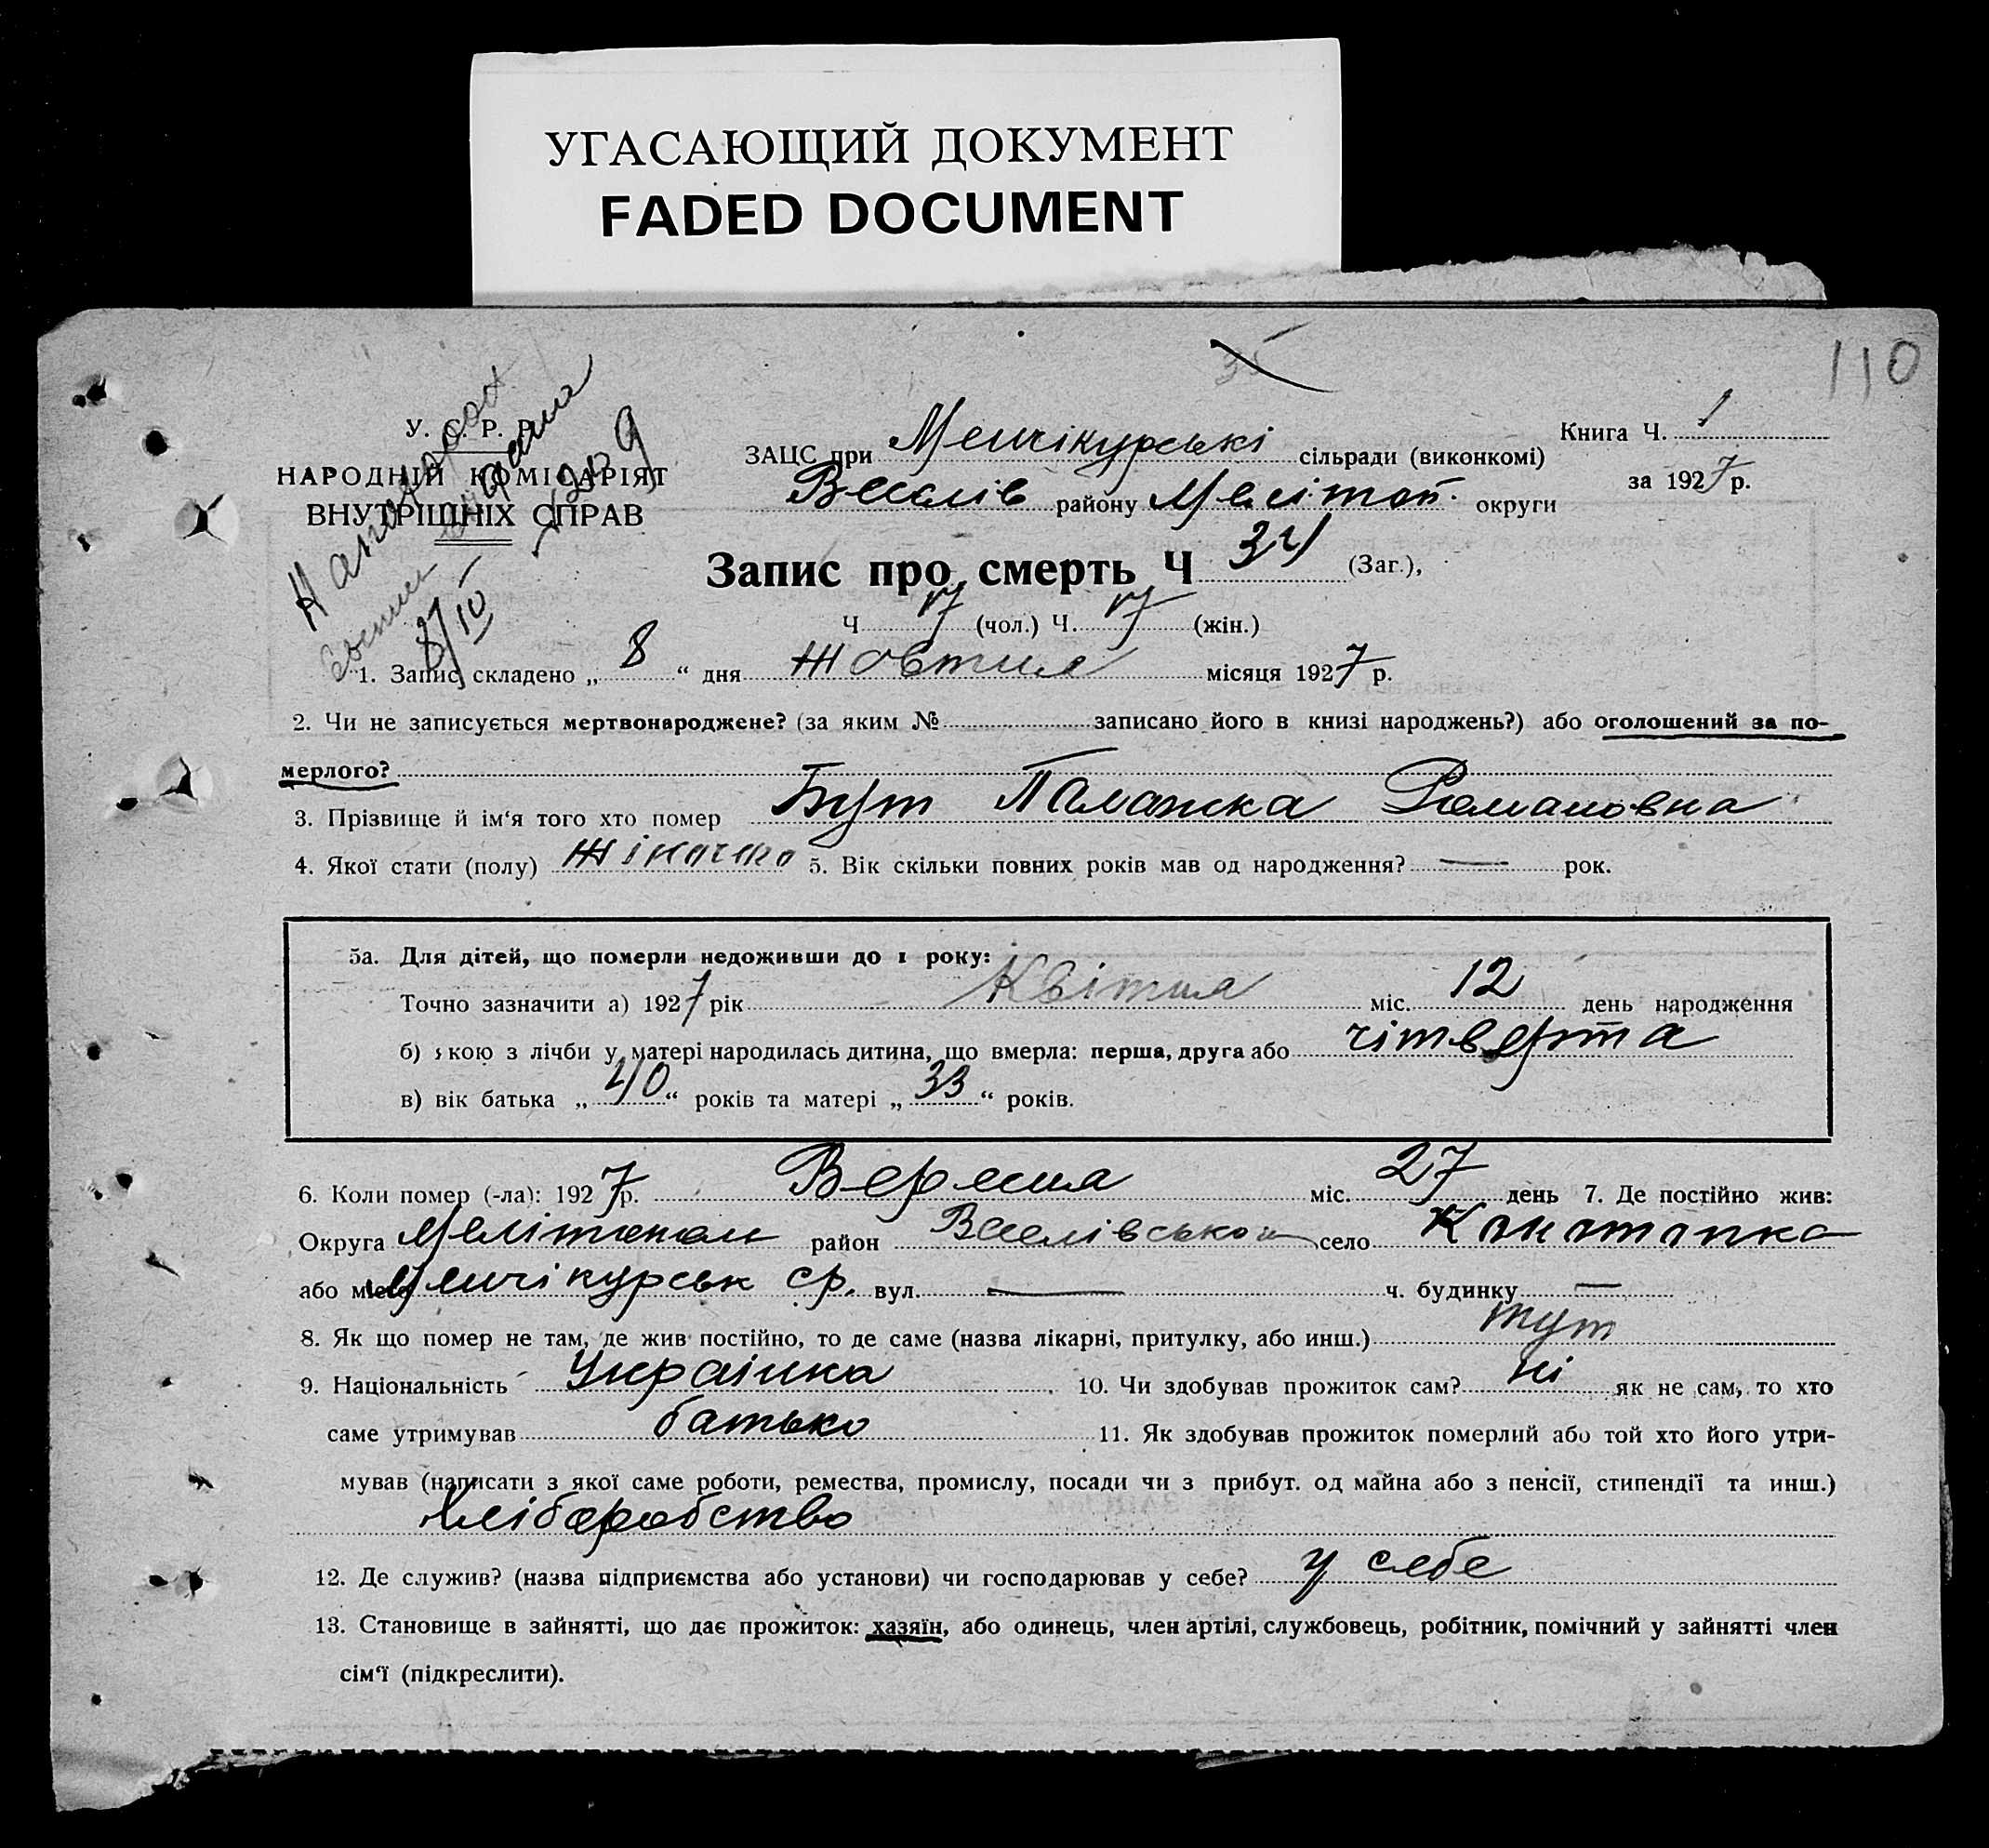 УГАСАЮЩИЙ ДОКУМЕНТ
FADED DOCUMENT
110
35
У. С. Р. Р.
НАРОДНІЙ КОМІСАРІЯТ
ВНУТРІШНІХ СПРАВ
8/10
ЗАЦС при Менчікурські сільради (виконкомі)
Веселів району Меліток. округи
Книга Ч. 1
за 1927 р.
Запис про смерть Ч 34 (Заг.),
Ч 17 (чол.) Ч. 17 (жін.)
1. Запис складено „ 8 “ дня Жовтня місяця 1927 р.
2. Чи не записується мертвонароджене? (за яким № записано його в книзі народжень?) або оголошений за по-
мерлого?
3. Прізвище й ім‘я того хто помер Бут Палажка Романовна
4. Якої стати (полу) Жіночко 5. Вік скільки повних років мав од народження? — рок.
5а. Для дітей, що померли недоживши до 1 року:
Точно зазначити а) 1927 рік Квітня міс. 12 день народження
б) якою з лічби у матері народилась дитина, що вмерла: перша, друга або чітверта
в) вік батька „ 40 “ років та матері „ 33 “ років.
6. Коли помер (-ла): 1927 р. Вересня міс. 27 день 7. Де постійно жив:
Округа район Веселівською село
або місто Менчікурськ ср. вул. — ч. будинку —
8. Як що помер не там, де жив постійно, то де саме (назва лікарні, притулку, або инш.) тут
9. Національність Українка 10. Чи здобував прожиток сам? ні як не сам, то хто
саме утримував батько 11. Як здобував прожиток померлий або той хто його утри-
мував (написати з якої саме роботи, ремества, промислу, посади чи з прибут. од майна або з пенсії, стипендії та инш.)
хліборобство
12. Де служив? (назва підприємства або установи) чи господарював у себе? у себе
13. Становище в зайнятті, що дає прожиток: хазяїн, або одинець, член артілі, службовець, робітник, помічний у зайнятті член
сім‘ї (підкреслити).